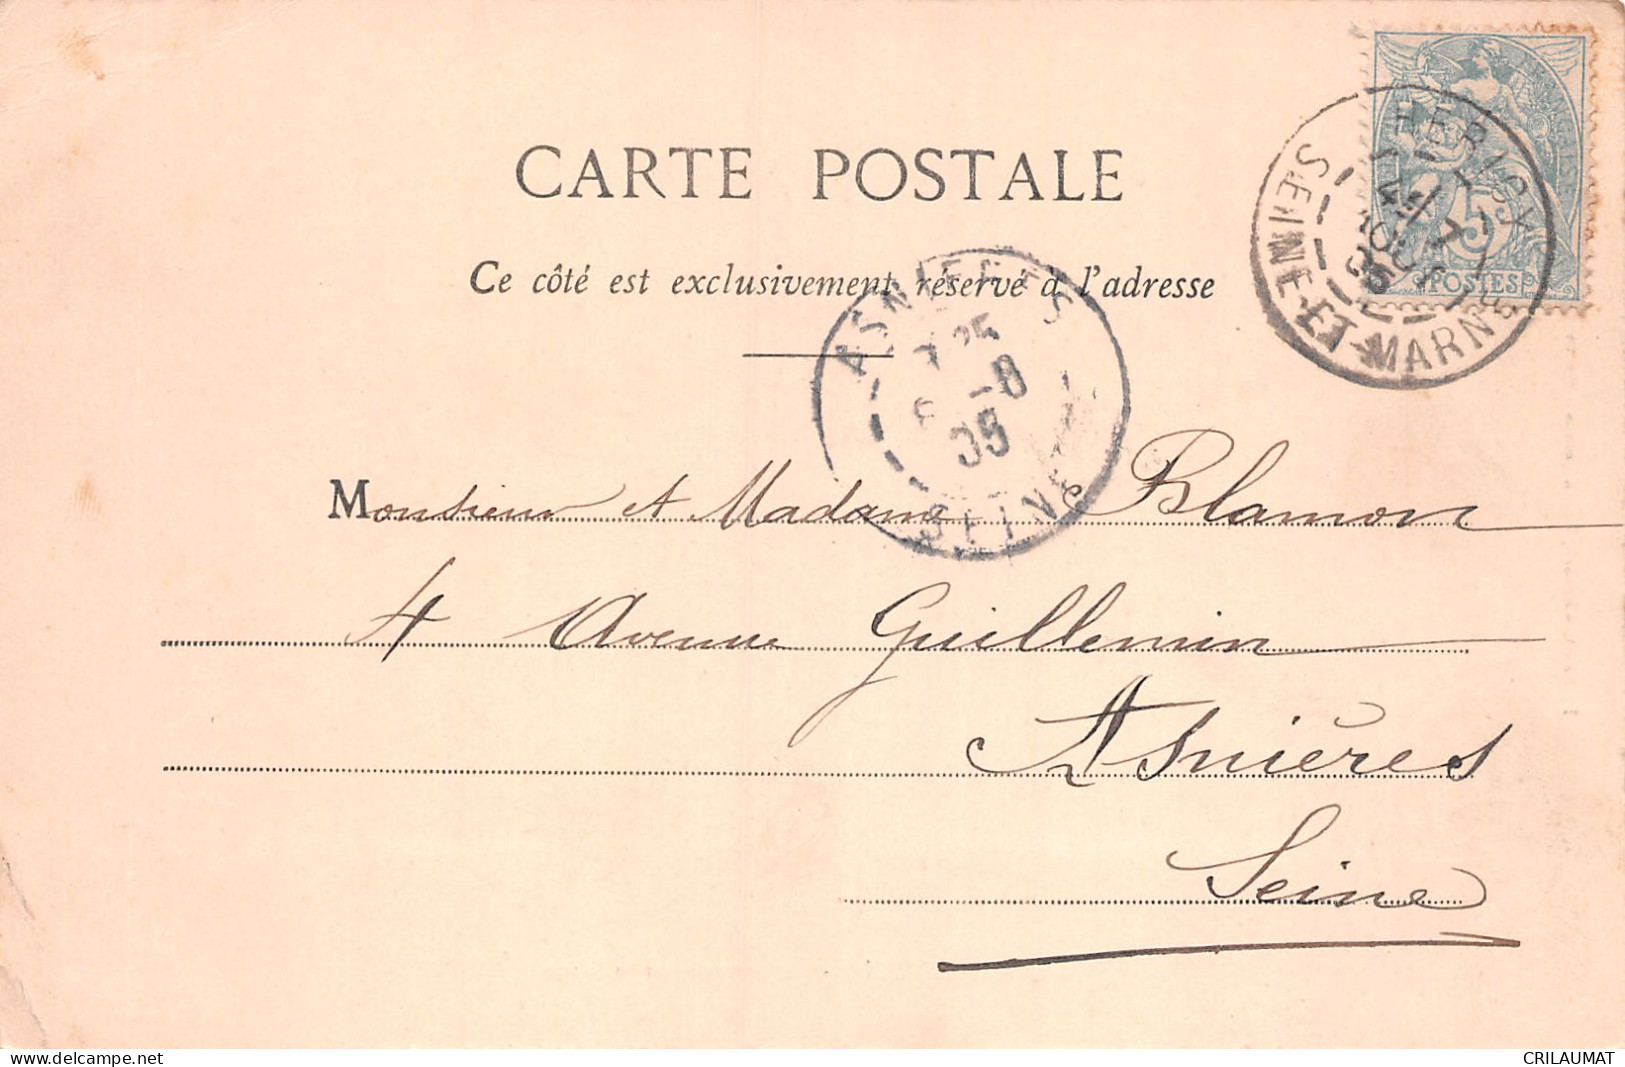 CARTE POSTALE
Ce côté est exclusivement réservé à l'adresse
POSTES
5
SEINE-ET-MARNE
ASNIERES
7 25
-8
05
SEINE
Monsieur et Madame Blamon
4 Avenue Guillemin
Asnières
Seine
www.delcampe.net
CRILAUMAT